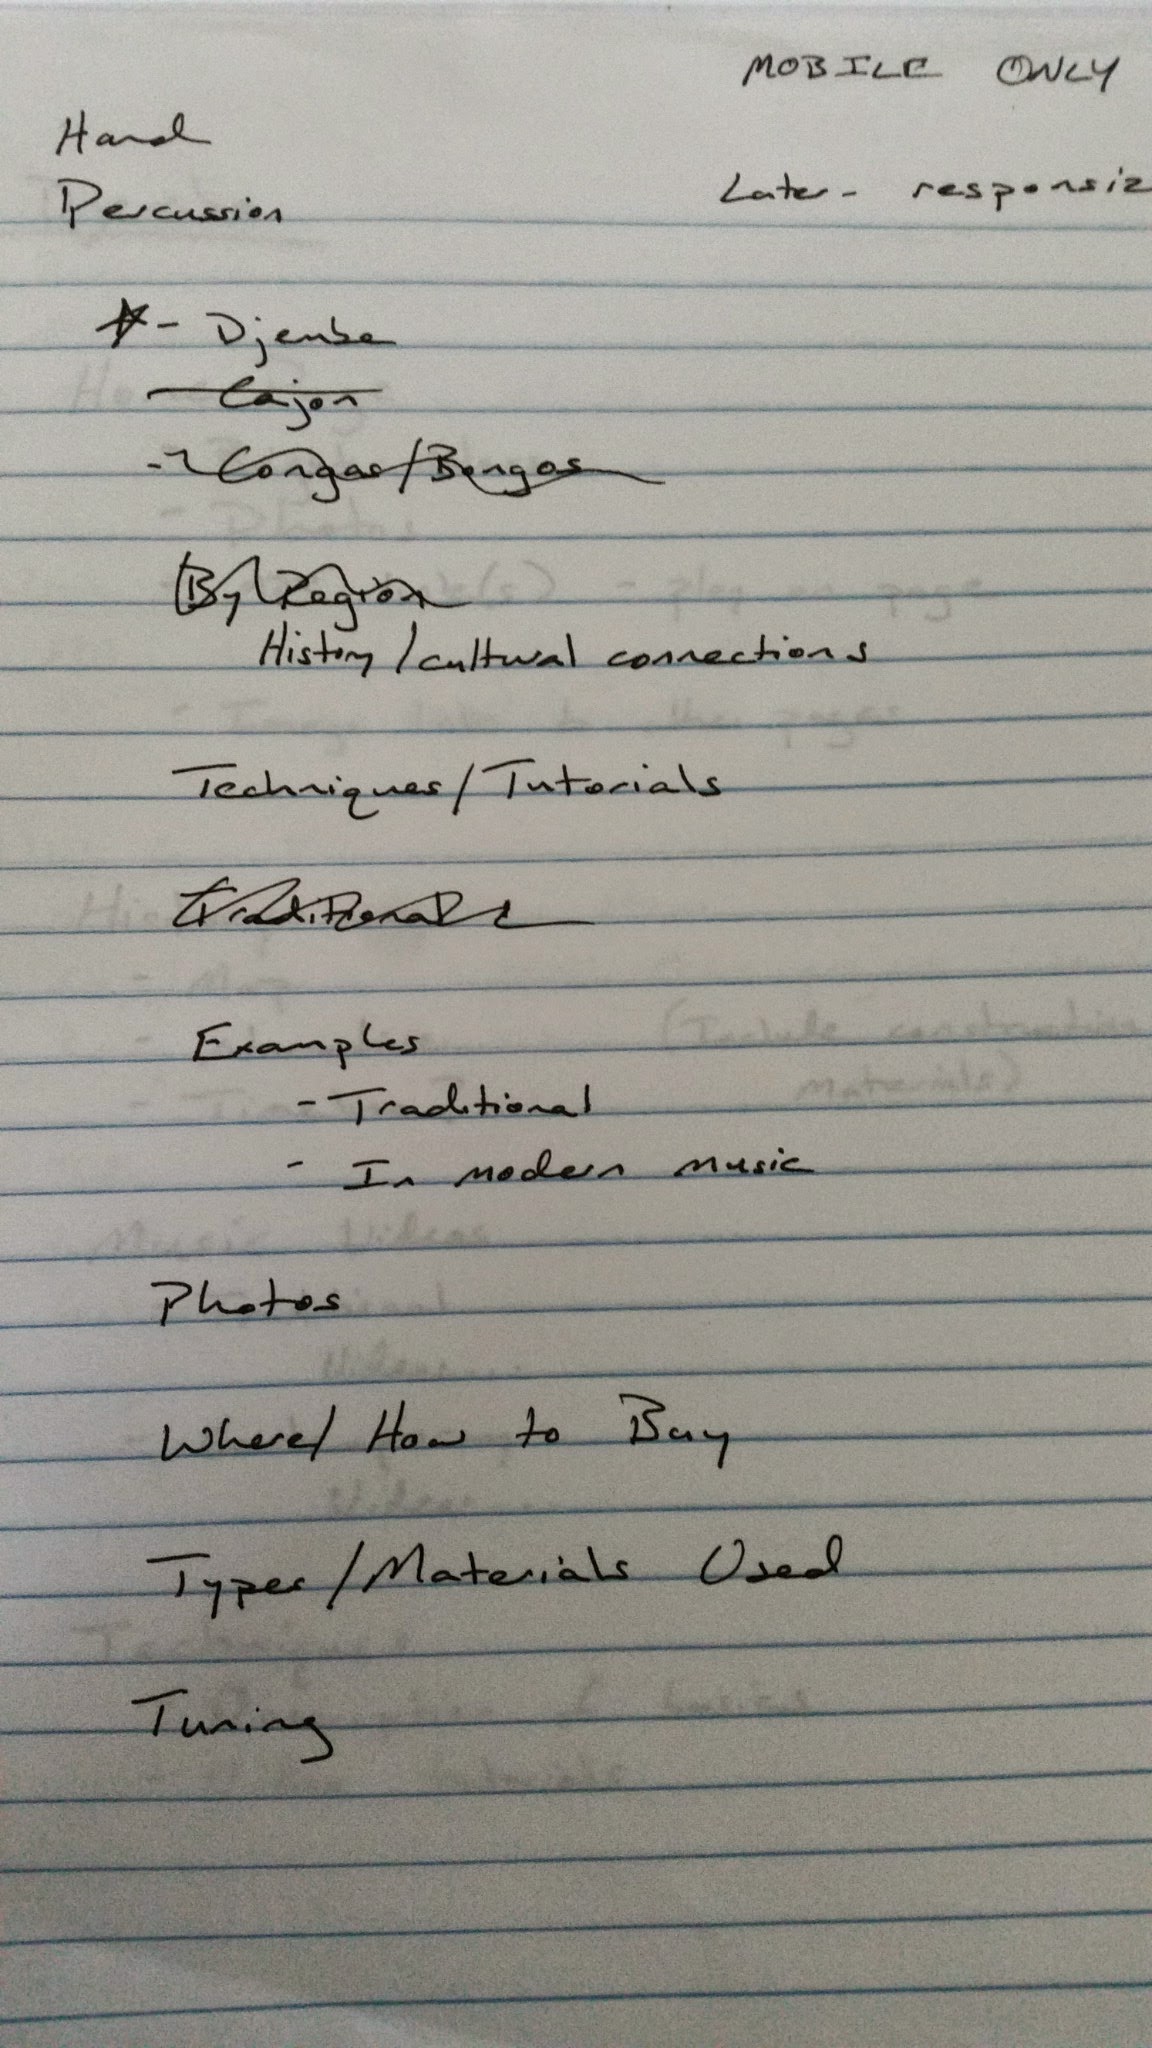 MOBILE ONLY
Hand
Percussion
Later - responsiz
- Djembe
Cajon
- Congas/Bongos
By Region
History/cultural connections
Techniques/Tutorials
Traditional
Examples
- Traditional
- In modern music
Photos
Where/How to Buy
Types/Materials Used
Tuning